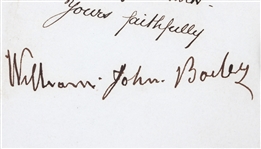 Yours faithfully
William. John. Bailey